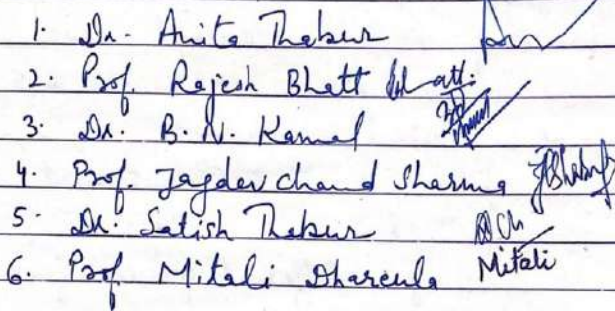 1. Dr. Anita Thakur
2. Prof. Rajesh Bhatt
3. Dr. B. N. Kamal
4. Prof. Jagdev chand Sharma
5. Dr. Satish Thakur
6. Prof Mitali Dhareula Mitali